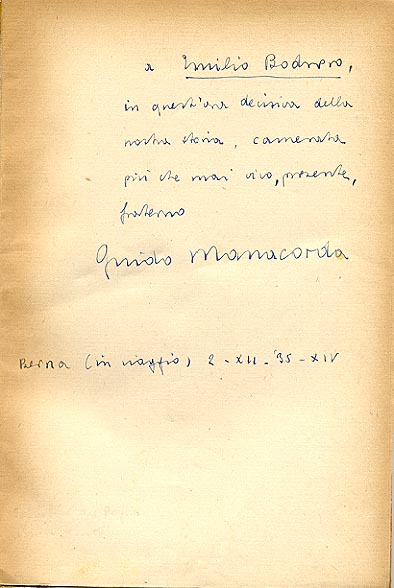 a Emilio Bodrero,
in quest'ora decisiva della
nostra storia, camerata
più che mai vivo, presente,
fraterno
Guido Manacorda
Berna (in viaggio) 2 - XII - '35 - XIV